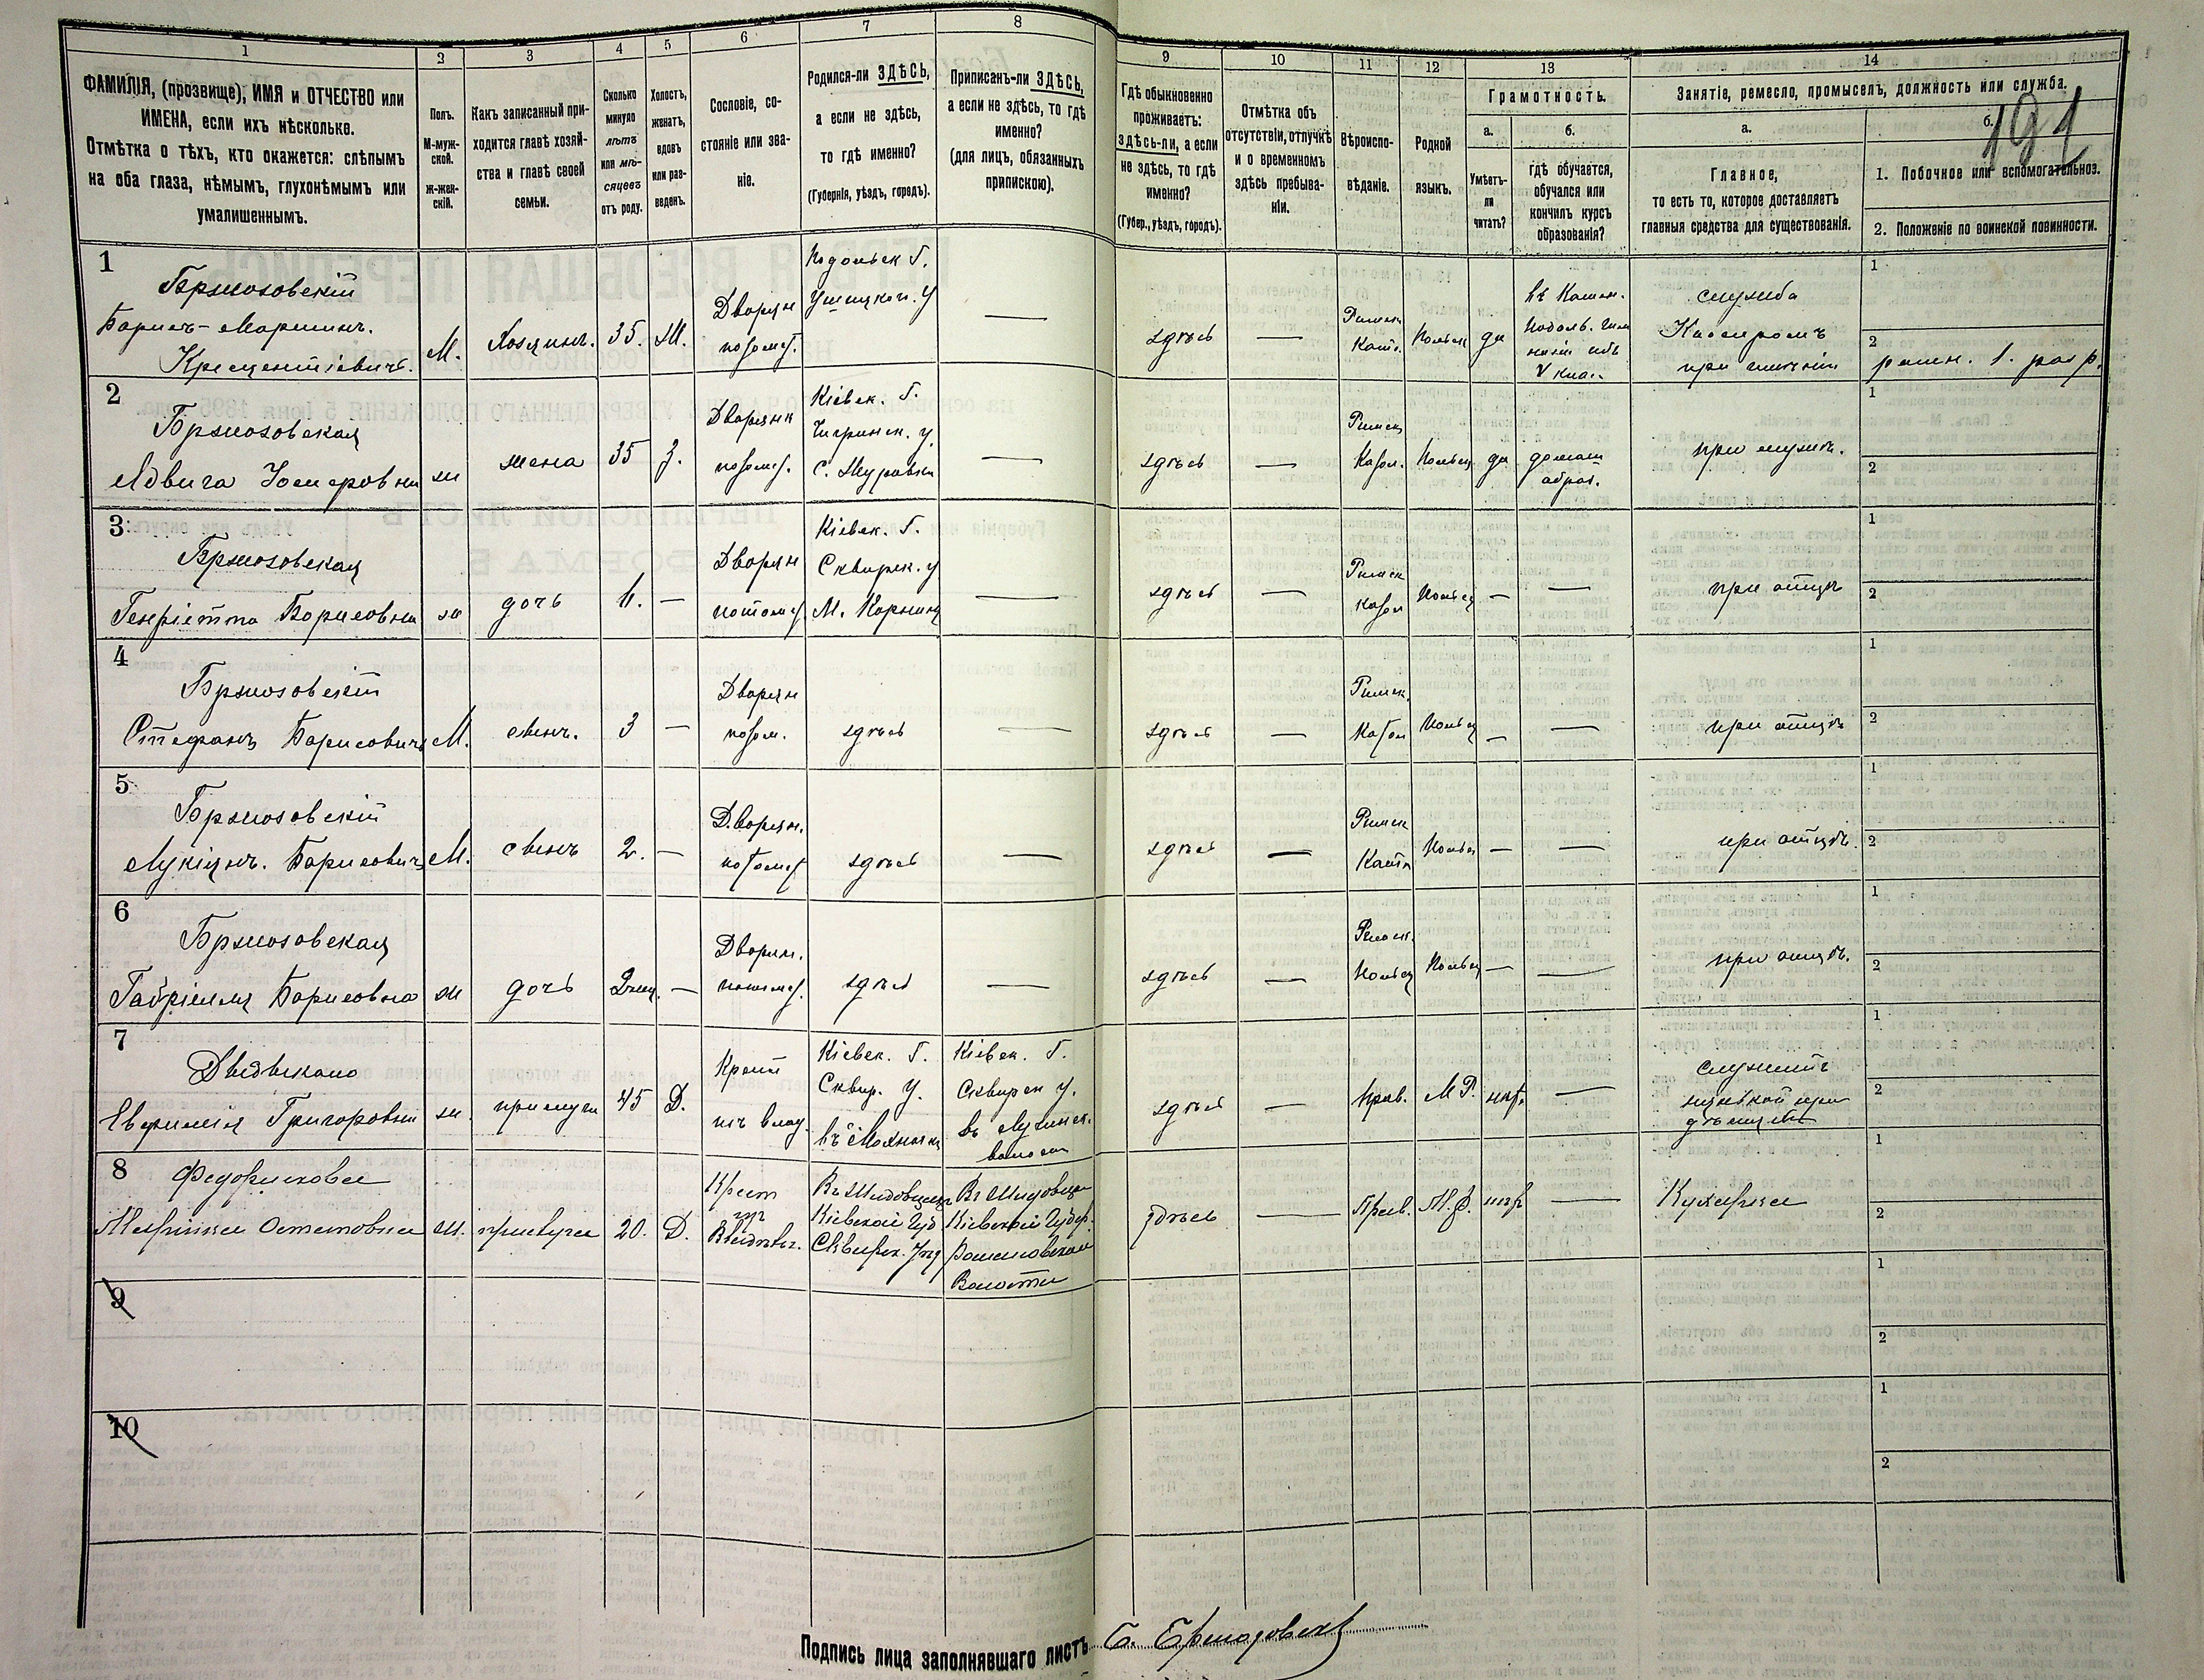 1
2
3
4
5
6
7
8
9
10
11
12
13
14
ФАМИЛІЯ, (прозвище), ИМЯ и ОТЧЕСТВО или
ИМЕНА, если ихъ нѣсколько.
Отмѣтка о тѣхъ, кто окажется: слѣпымъ
на оба глаза, нѣмымъ, глухонѣмымъ или
умалишеннымъ.
Полъ.
М-муж-
ской.
ж-жен-
скій.
Какъ записанный при-
ходится главѣ хозяй-
ства и главѣ своей
семьи.
Сколько
минуло
лѣтъ
или мѣ-
сяцевъ
отъ роду.
Холостъ,
женатъ,
вдовъ
или раз-
веденъ.
Сословіе, со-
стояніе или зва-
ніе.
Родился-ли ЗДѢСЬ,
а если не здѣсь,
то гдѣ именно?
(Губернія, уѣздъ, городъ).
Приписанъ-ли ЗДѢСЬ,
а если не здѣсь, то гдѣ
именно?
(для лицъ, обязанныхъ
припискою).
Гдѣ обыкновенно
проживаетъ:
здѣсь-ли, а если
не здѣсь, то гдѣ
именно?
(Губер., уѣздъ, городъ).
Отмѣтка объ
отсутствіи, отлучкѣ
и о временномъ
здѣсь пребыва-
ніи.
Вѣроиспо-
вѣданіе.
Родной
языкъ.
Грамотность.
а.
Умѣетъ-
ли
читать?
б.
гдѣ обучается,
обучался или
кончилъ курсъ
образованія?
Занятіе, ремесло, промыселъ, должность или служба.
а.
Главное,
то есть то, которое доставляетъ
главныя средства для существованія.
б.
191
1. Побочное или вспомогательное.
2. Положеніе по воинской повинности.
1
Бржозовскій
Борисъ-Марцинъ.
Кресцентіевичъ.
М.
Хозяинъ.
35.
Ж.
Дворян
потомст.
Подольск Г.
Ушицкаго. У
—
здѣсь
—
Римск
Като.
Польск
да
въ Камен.
Подоль. Гим
V клас.
служба
Кассиромъ
при имѣніи
1
2
ратн. 1. разр.
2
Бржозовская
Ядвига Іосифовна
ж
жена
35
З.
Дворянк
потомст.
Кіевск. Г.
Чигринск. у.
С. Журавки
—
здѣсь
—
Римск
Катол.
Польск
да
домаш
образ.
при мужѣ.
1
2
3
Бржозовская
Генріетта Борисовна
ж
дочь
—
Дворян
потомст
Кіевск. Г.
Сквирск. у
М. Корнинъ
—
здѣсь
—
Римск
катол
Польск
—
—
при отцѣ
1
2
4
Бржозовскій
Стефанъ Борисовичъ
М.
сынъ.
3
—
Дворян
потом.
здѣсь
—
здѣсь
—
Римск.
Катол
Польск
—
—
при отцѣ
1
2
5
Бржозовскій
Люціянъ. Борисовичъ
М.
сынъ
2.
—
Дворян.
потомст
здѣсь
—
здѣсь
—
Римск
Катол
Польск
—
—
при отцѣ.
1
2
6
Бржозовская
Габріеля Борисовна
ж
дочь
2 мц.
—
Дворян.
потомст.
здѣсь
—
здѣсь
—
Римск.
Польск
Польск
—
—
при отцѣ.
1
2
7
Евфимія Григоровна
ж.
прислуга
45
Д.
Крест
изъ влад.
Кіевск. Г.
Сквир. У.
Кіевск. Г.
Сквирск у.
волости
здѣсь
—
Прав.
М Р.
нѣт.
—
служитъ
нянькой при
дѣтяхъ
1
2
8
Марійка Остаповна
ж.
прислуга
20.
Д.
Крест
изъ
Кіевской Губ
Сквирск. Уѣзд
Кіевской Губер.
Волости
здѣсь
—
Прав.
М. Р.
нѣт
—
Кухарка
1
2
9
1
2
10
1
2
Подпись лица заполнявшаго листъ Б. Бржозовскій